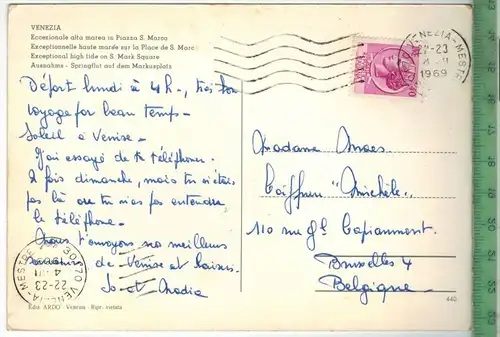 VENEZIA
Eccezionale alta marea in Piazza S. Marco
Exceptionnelle haute marée sur la Place de S. Marc
Exceptional high tide on S. Mark Square
Ausnahme - Springflut auf dem Markusplatz
Départ lundi à 4h., très bon
voyage par beau temps -
Soleil à Venise -
J'ai essayé de te téléphoner
2 fois dimanche, mais tu n'étais
pas là ou tu n'as pas entendu
le téléphone -
Nous t'envoyons nos meilleurs
de Venise et baisers
Jo et Nadia
VENEZIA-MESTRE
22-23
1969
Madame Maes
Coiffure "Michèle"
110 rue Capiaumont
Bruxelles 4
Belgique
30170 VENEZIA-MESTRE
22-23
Ediz. ARDO - Venezia - Ripr. vietata
440